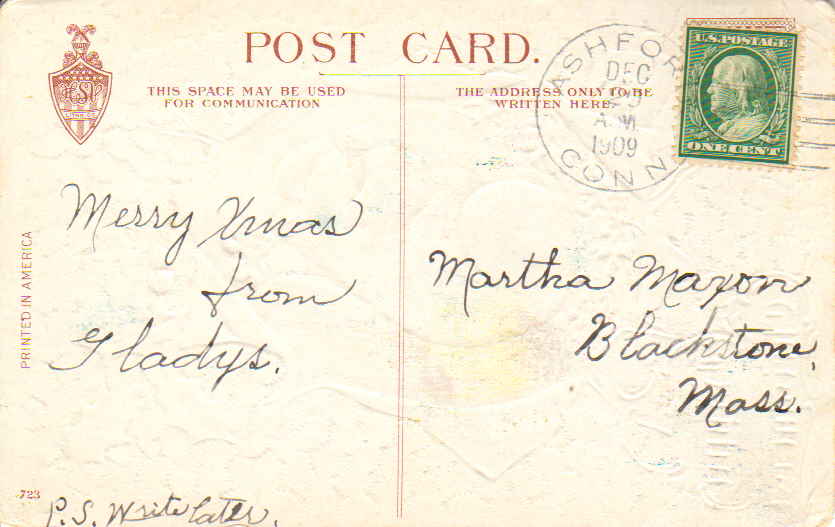 POST CARD.
THIS SPACE MAY BE USED
FOR COMMUNICATION
THE ADDRESS ONLY TO BE
WRITTEN HERE.
ASHFORD
DEC
A.M.
1909
CONN
U.S. POSTAGE
ONE CENT
LITHO. CO.
PRINTED IN AMERICA
Merry Xmas
from
Gladys.
Martha Maxon
Blackstone,
Mass.
723
P.S. Write later.